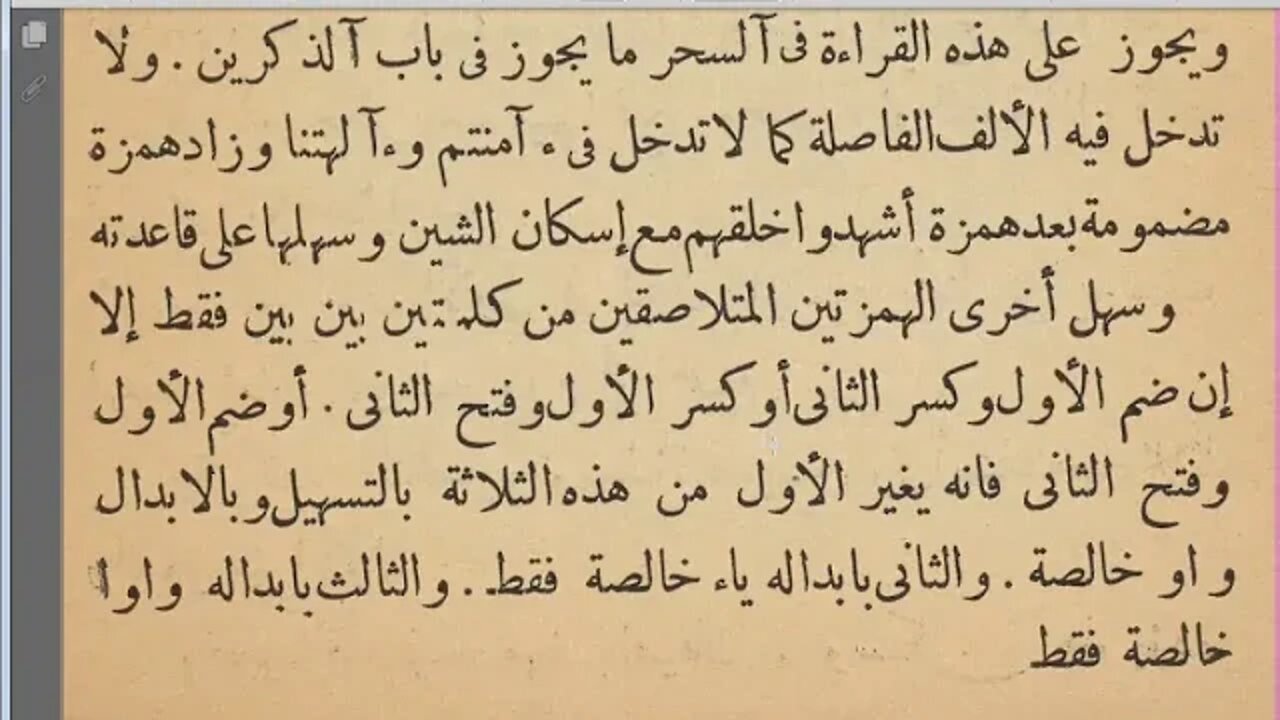 ويجوز على هذه القراءة فى آلسحر ما يجوز فى باب آلذكرين . ولا
تدخل فيه الألف الفاصلة كما لا تدخل فى ء آمنتم وءآلهتنا وزاد همزة
مضمومة بعد همزة أشهدوا خلقهم مع إسكان الشين وسهلها على قاعدته
وسهل أخرى الهمزتين المتلاصقين من كلمتين بين بين فقط إلا
إن ضم الأول وكسر الثانى أو كسر الأول وفتح الثانى . أو ضم الأول
وفتح الثانى فانه يغير الأول من هذه الثلاثة بالتسهيل وبالابدال
واو خالصة . والثانى بابداله ياء خالصة فقط . والثالث بابداله واوا
خالصة فقط